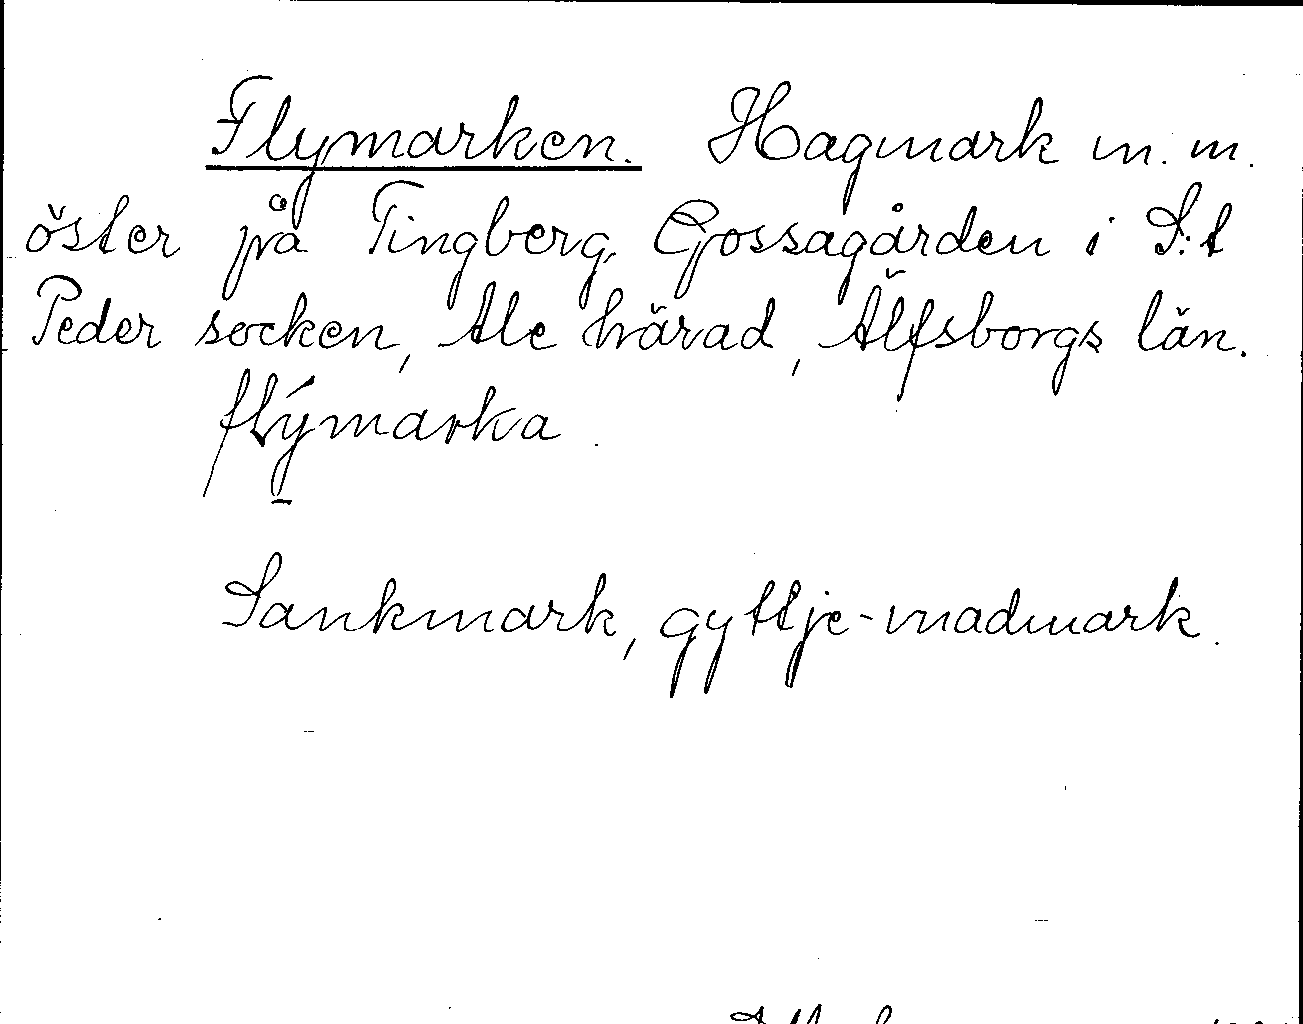 Flymarken. Hagmark m. m.
öster på Tingberg Gossagården i S:t
Peder socken, Ale härad, Älfsborgs län.
flýmarka
Sankmark, gyttje-madmark.